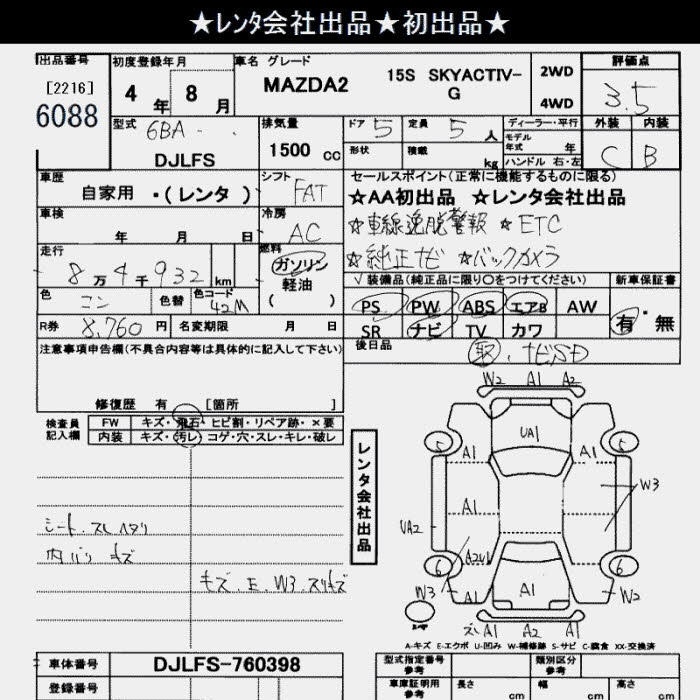 ★レンタ会社出品★初出品★
出品番号 初度登録年月 車名 グレード 評価点
[2216] 6088
4年 8月 MAZDA2 15S SKYACTIV-G 2WD 4WD 3.5
型式 6BA - 排気量 ドア 5 定員 5人 ディーラー・平行 外装 内装
DJLFS 1500 cc 形状 積載 kg モデル年式 年 ハンドル 右・左 C B
車歴 シフト セールスポイント(正常に機能するものに限る)
自家用 ・(レンタ ) FAT ★AA初出品 ★レンタ会社出品
車検 冷房 ☆車線逸脱警報 ☆ETC
年 月 日 AC ☆純正ナビ ☆バックカメラ
走行 燃料 √装備品(純正品に限り○をつけてください) 新車保証書
8万4千932 km ガソリン 軽油 ( )
PS PW ABS エアB AW 有・無
色 コン 色替 色コード 42M
SR ナビ TV カワ
R券 8,760円 名変期限 月 日 後日品 取.ナビSD
注意事項申告欄(不具合内容等は具体的に記入して下さい)
修復歴 有 [箇所 ]
検査員記入欄 FW キズ・飛石・ヒビ割・リペア跡・×要
内装 キズ・汚レ・コゲ・穴・スレ・キレ・破レ
レンタ会社出品
W2 A1 A2
UA1
5 A1 A1 5
W3
A1 A1
UA2
シート.スレ
内バリ キズ
6 A2U1 6
キズ.E.W3.スリキズ
W3 A1 A1 A1 W2
A1 A2 A1
A-キズ E-エクボ U-凹み W-補修跡 S-サビ C-腐食 XX-交換済
車体番号 DJLFS-760398 型式指定番号参考 類別区分参考
登録番号 車庫証明用参考 長さ cm 幅 cm 高さ cm